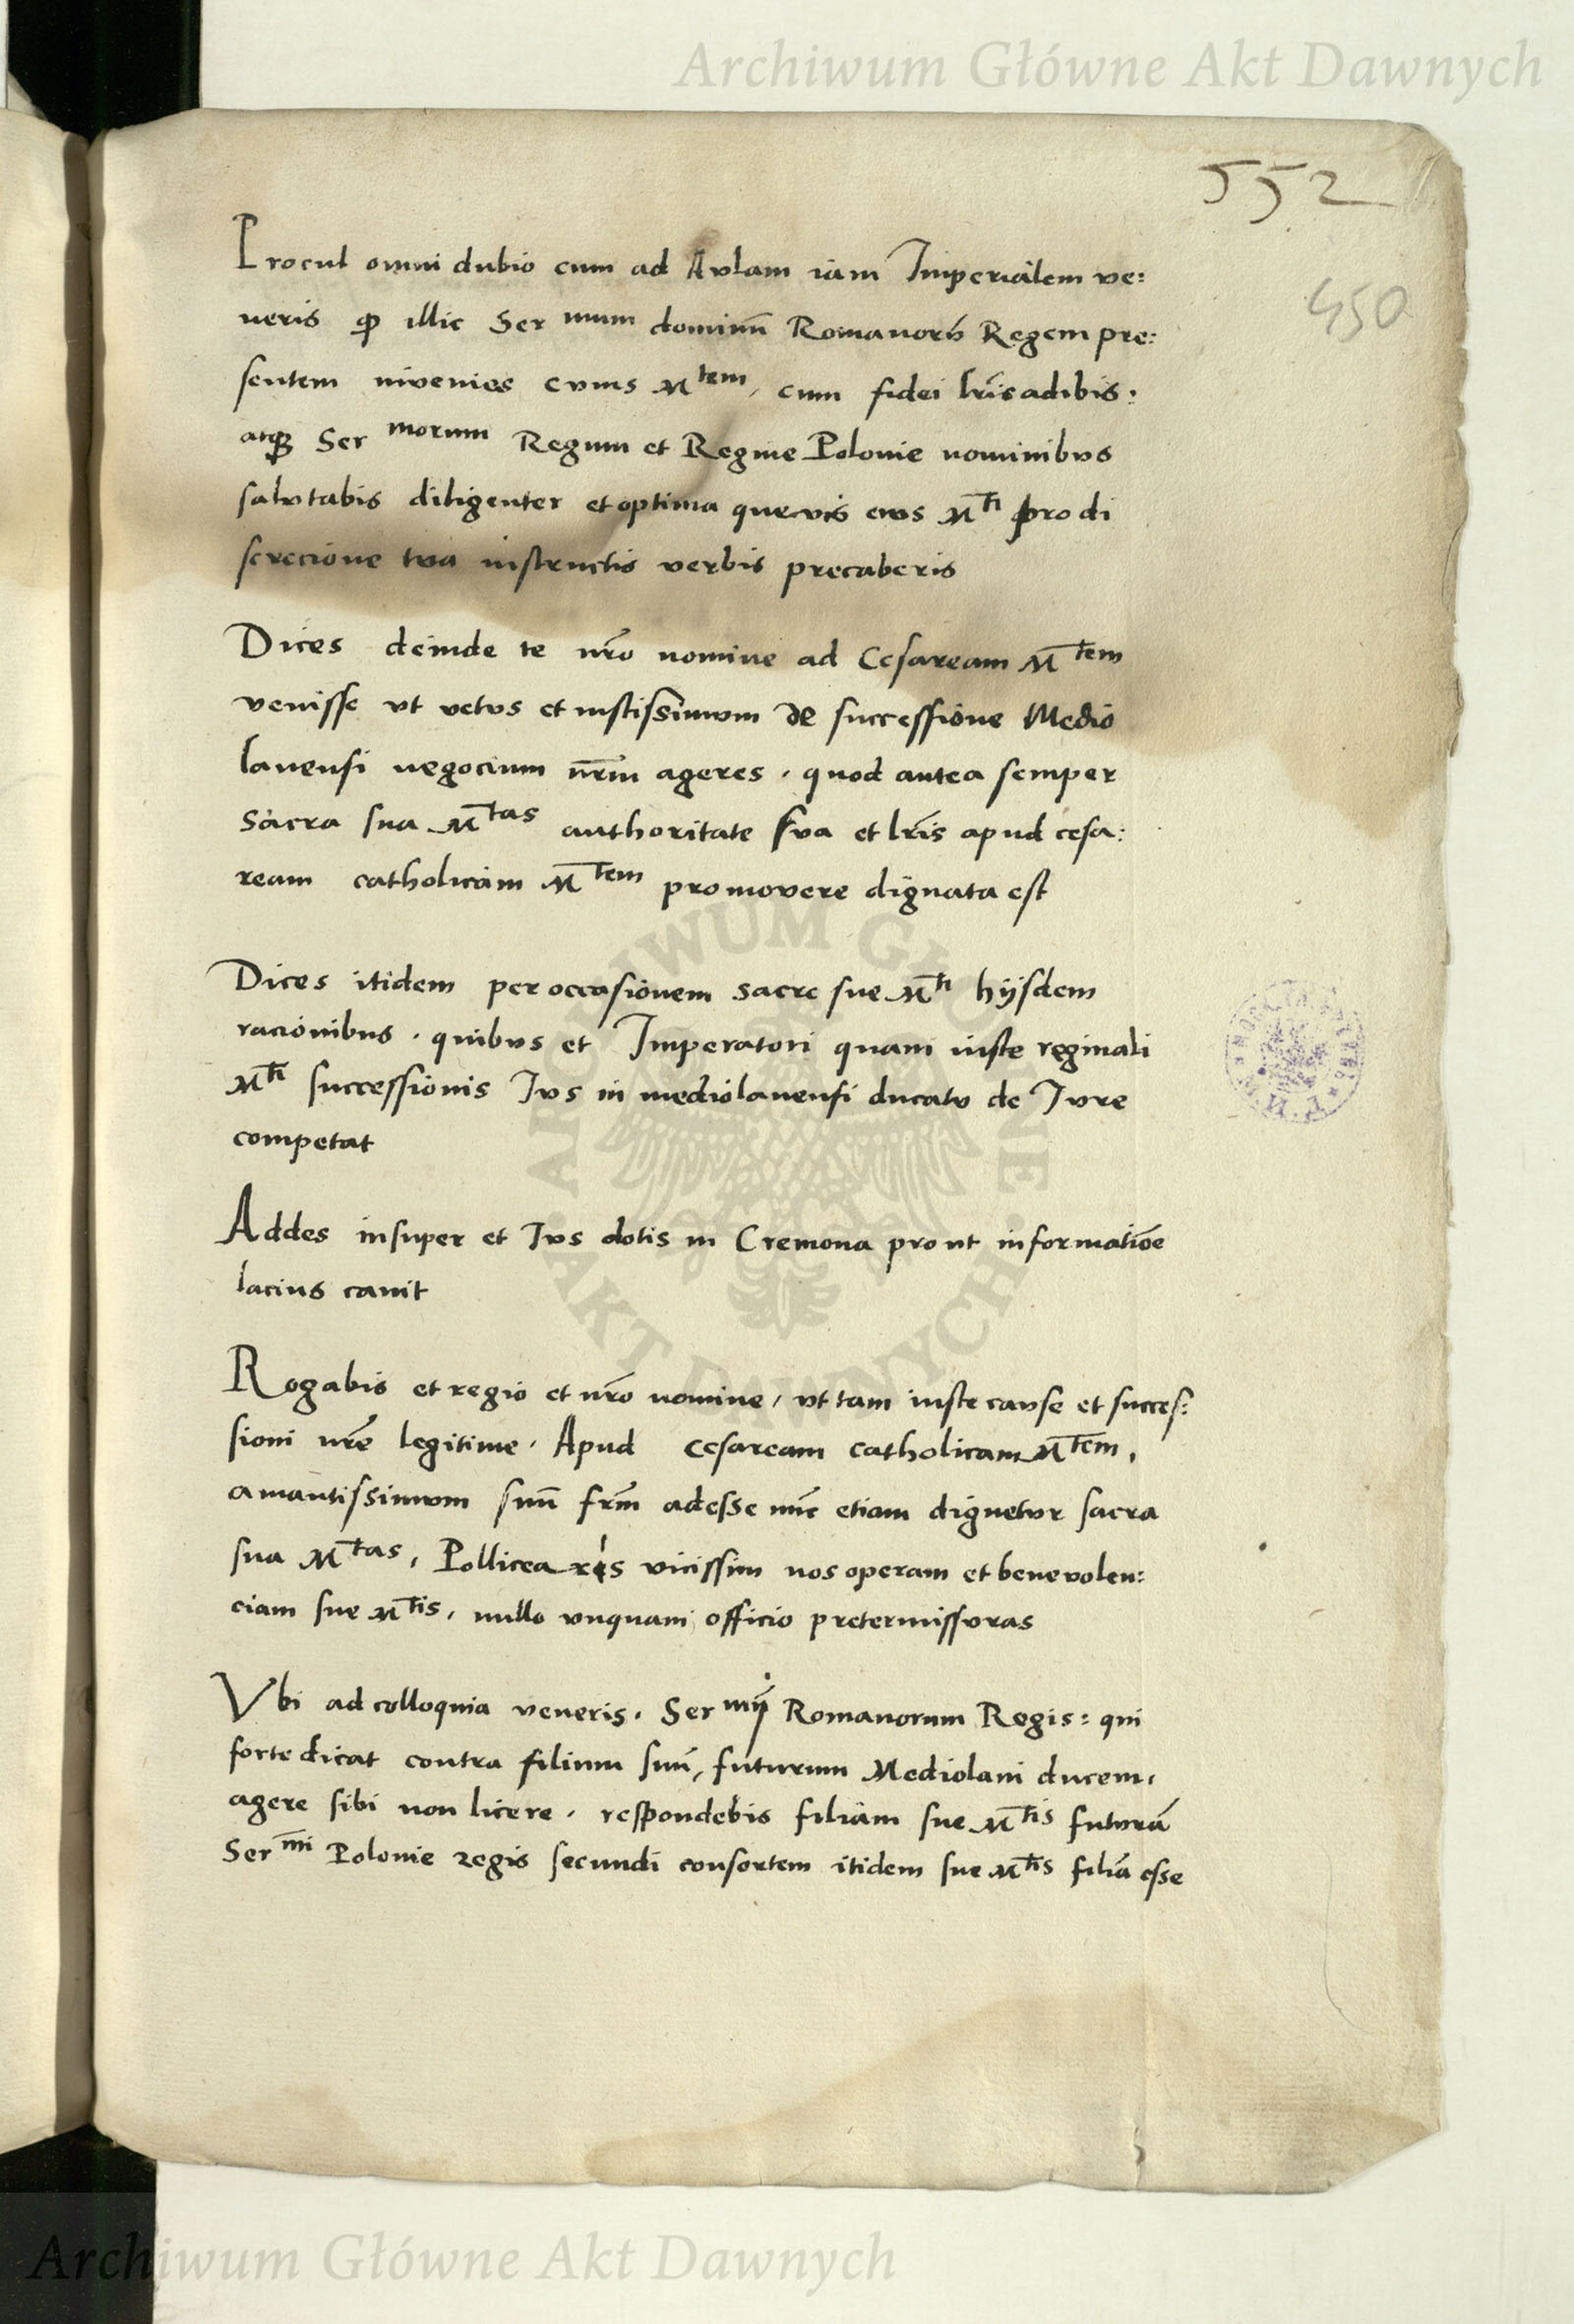 Archiwum Główne Akt Dawnych
552
450
Procul omni dubio cum ad Aulam iam Imperialem ve:
neris ꝙ illic Ser mum dominū Romanorū Regem pre:
sentem invenies cuius Mtem, cum fidei lr̄is adibis:
atqꝫ Ser morum Regum et Regine Polonie nominibus
salvtabis diligenter et optima quevis eius Mti pro di
screcione tva instructis verbis precaberis
Dices deinde te nr̄o nomine ad Cesaream Mtem
venisse vt vetvs et iustissimvm de successione Medio
lanensi negocium nr̄m ageres, quod antea semper
Sacra sua Mtas authoritate sva et lr̄is apud cesa:
ream catholicam Mtem promovere dignata est
Dices itidem per occasionem sacre sue Mti hijsdem
racionibus, quibvs et Imperatori quam iuste reginali
Mti successionis Ivs in mediolanensi ducatv de Ivre
competat
Addes insuper et Ivs dotis in Cremona prout informatiōe
lacius canit
Rogabis et regio et nr̄o nomine, vt tam iuste cavse et succes:
sioni nr̄e legitime, Apud cesaream catholicam Mtem,
amantissimvm suū fr̄m adesse nūc etiam dignetvr sacra
sua Mtas, Pollicearis vicissim nos operam et benevolen:
ciam sue Mtis, nullo vnquam officio pretermissvras
Vbi ad colloquia veneris, Ser mij Romanorum Regis: qui
forte dicat contra filium suū, futurum Mediolani ducem,
agere sibi non licere, respondebis filiam sue Mtis futurā
Ser mi Polonie regis secundi consortem itidem sue Mtis filiā esse
ARCHIWUM GŁÓWNE AKT DAWNYCH
Archiwum Główne Akt Dawnych